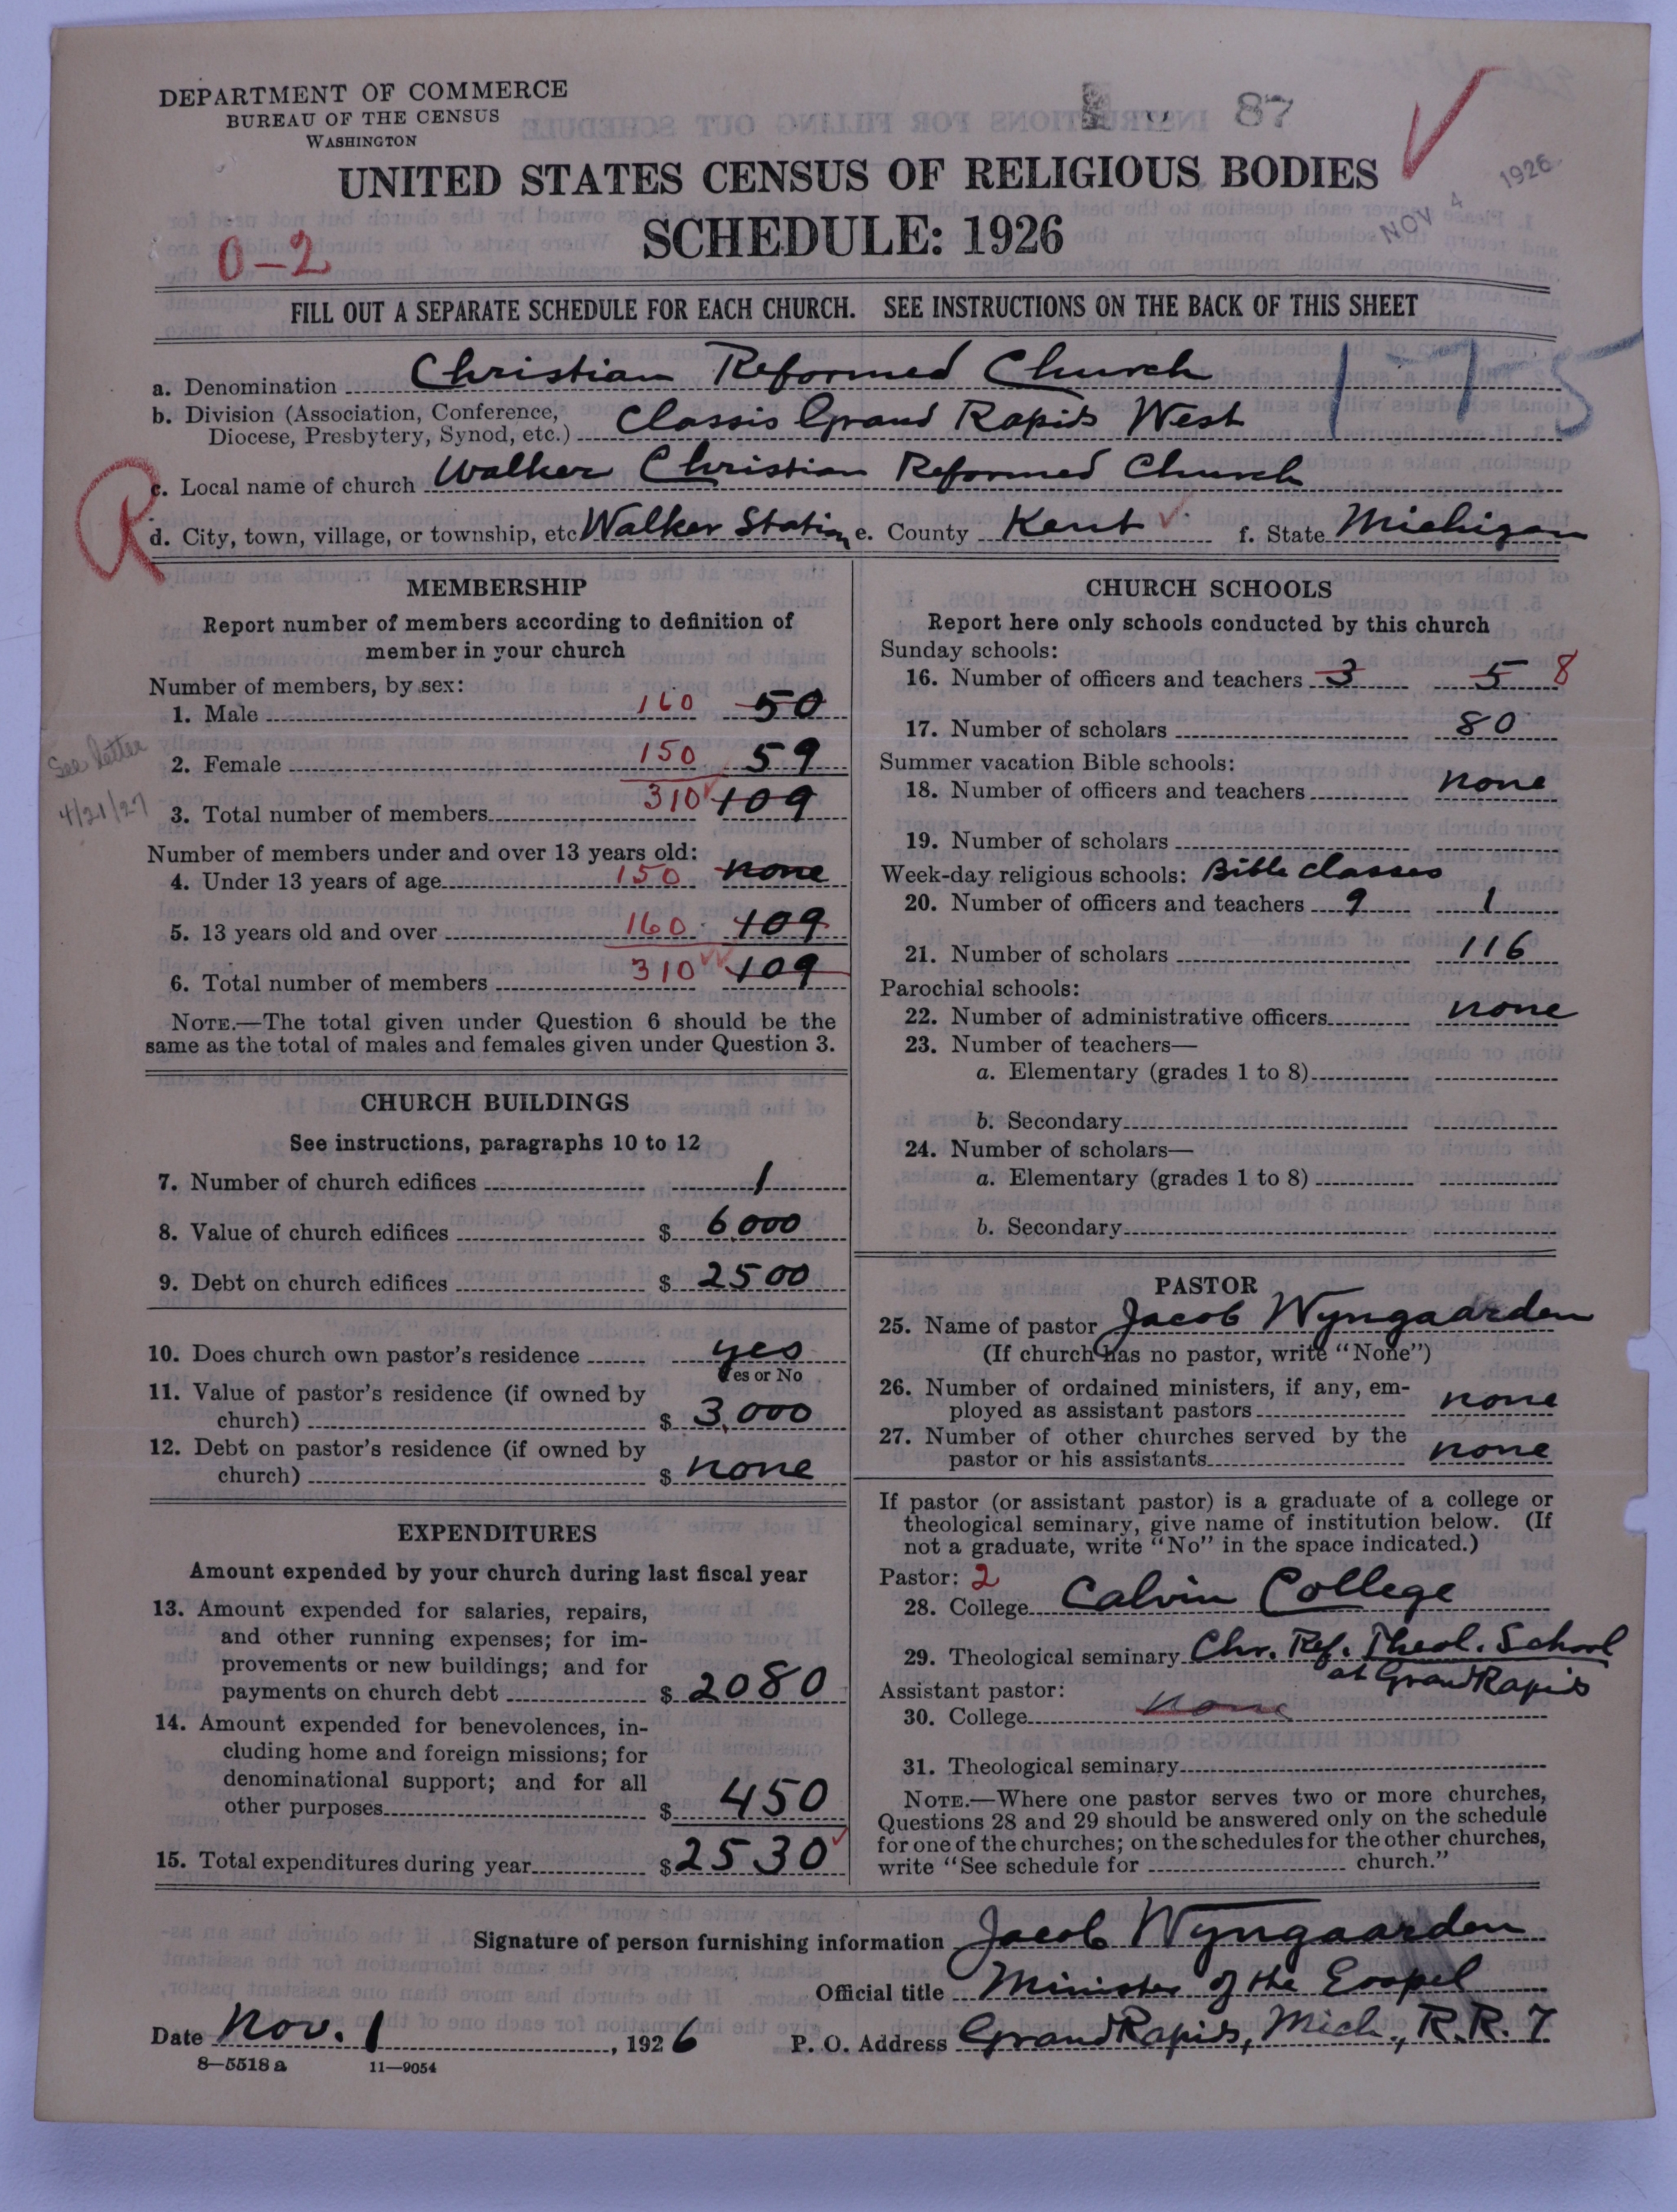 DEPARTMENT OF COMMERCE
BUREAU OF THE CENSUS
WASHINGTON
87
UNITED STATES CENSUS OF RELIGIOUS BODIES
SCHEDULE: 1926
NOV 4 1926
0-2
FILL OUT A SEPARATE SCHEDULE FOR EACH CHURCH. SEE INSTRUCTIONS ON THE BACK OF THIS SHEET
1-75
a. Denomination Christian Reformed Church
b. Division (Association, Conference, Diocese, Presbytery, Synod, etc.) Classis Grand Rapids West
R
c. Local name of church Walker Christian Reformed Church
d. City, town, village, or township, etc Walker Station e. County Kent f. State Michigan
MEMBERSHIP
Report number of members according to definition of
member in your church
Number of members, by sex:
1. Male 160 50
See letter
4/21/27
2. Female 150 59
3. Total number of members 310 109
Number of members under and over 13 years old:
4. Under 13 years of age 150 none
5. 13 years old and over 160 109
6. Total number of members 310 109
NOTE.—The total given under Question 6 should be the
same as the total of males and females given under Question 3.
CHURCH BUILDINGS
See instructions, paragraphs 10 to 12
7. Number of church edifices 1
8. Value of church edifices $ 6,000
9. Debt on church edifices $ 2500
10. Does church own pastor's residence yes
Yes or No
11. Value of pastor's residence (if owned by
church) $ 3,000
12. Debt on pastor's residence (if owned by
church) $ none
EXPENDITURES
Amount expended by your church during last fiscal year
13. Amount expended for salaries, repairs,
and other running expenses; for im-
provements or new buildings; and for
payments on church debt $ 2080
14. Amount expended for benevolences, in-
cluding home and foreign missions; for
denominational support; and for all
other purposes $ 450
15. Total expenditures during year $ 2530
CHURCH SCHOOLS
Report here only schools conducted by this church
Sunday schools:
16. Number of officers and teachers 3 5 8
17. Number of scholars 80
Summer vacation Bible schools:
18. Number of officers and teachers none
19. Number of scholars
Week-day religious schools: Bible classes
20. Number of officers and teachers 9 1
21. Number of scholars 116
Parochial schools:
22. Number of administrative officers none
23. Number of teachers—
a. Elementary (grades 1 to 8)
b. Secondary
24. Number of scholars—
a. Elementary (grades 1 to 8)
b. Secondary
PASTOR
25. Name of pastor Jacob Wyngaarden
(If church has no pastor, write "None")
26. Number of ordained ministers, if any, em-
ployed as assistant pastors none
27. Number of other churches served by the
pastor or his assistants none
If pastor (or assistant pastor) is a graduate of a college or
theological seminary, give name of institution below. (If
not a graduate, write "No" in the space indicated.)
Pastor: 2
28. College Calvin College
29. Theological seminary Chr. Ref. Theol. School
at Grand Rapids
Assistant pastor:
30. College none
31. Theological seminary
NOTE.—Where one pastor serves two or more churches,
Questions 28 and 29 should be answered only on the schedule
for one of the churches; on the schedules for the other churches,
write "See schedule for church."
Signature of person furnishing information Jacob Wyngaarden
Official title Minister of the Gospel
Date Nov. 1, 1926 P. O. Address Grand Rapids, Mich., R.R. 7
8—5518 a 11—9054